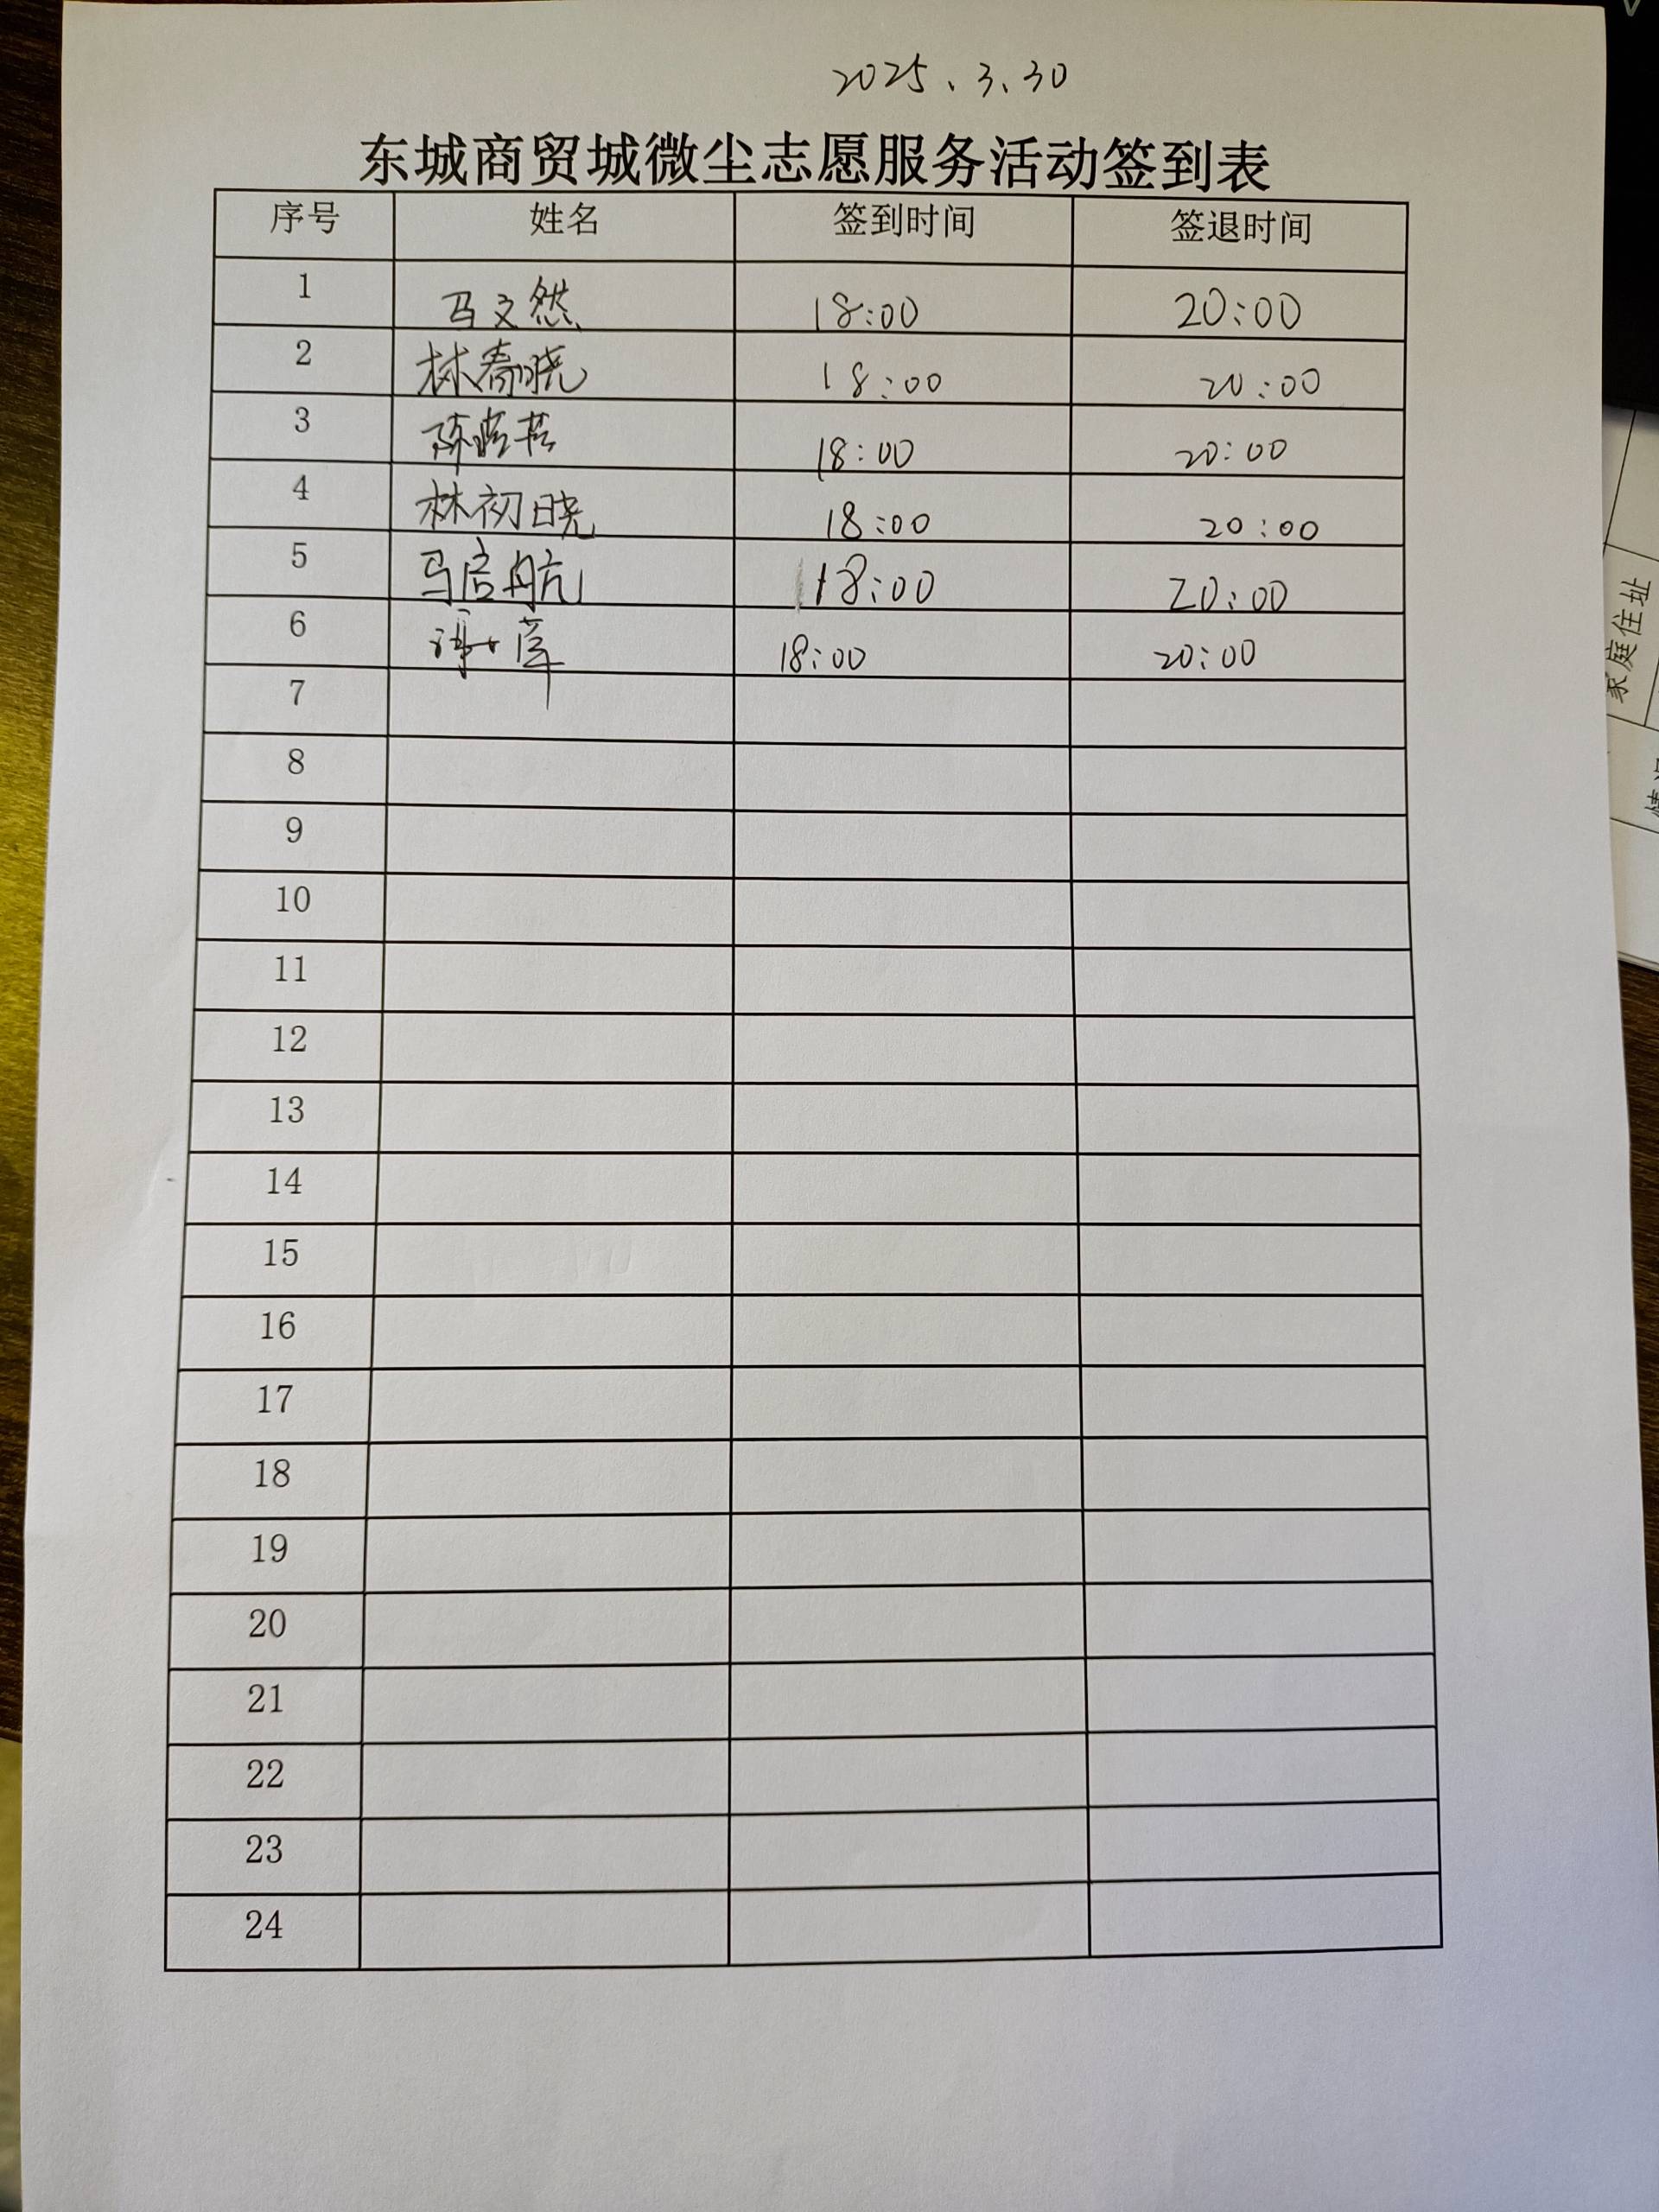 2025.3.30
东城商贸城微尘志愿服务活动签到表
序号 姓名 签到时间 签退时间
1 马文然 18:00 20:00
2 林春晓 18:00 20:00
3 陈 18:00 20:00
4 林初晓 18:00 20:00
5 马启航 18:00 20:00
6 18:00 20:00
7
8
9
10
11
12
13
14
15
16
17
18
19
20
21
22
23
24
家庭住址